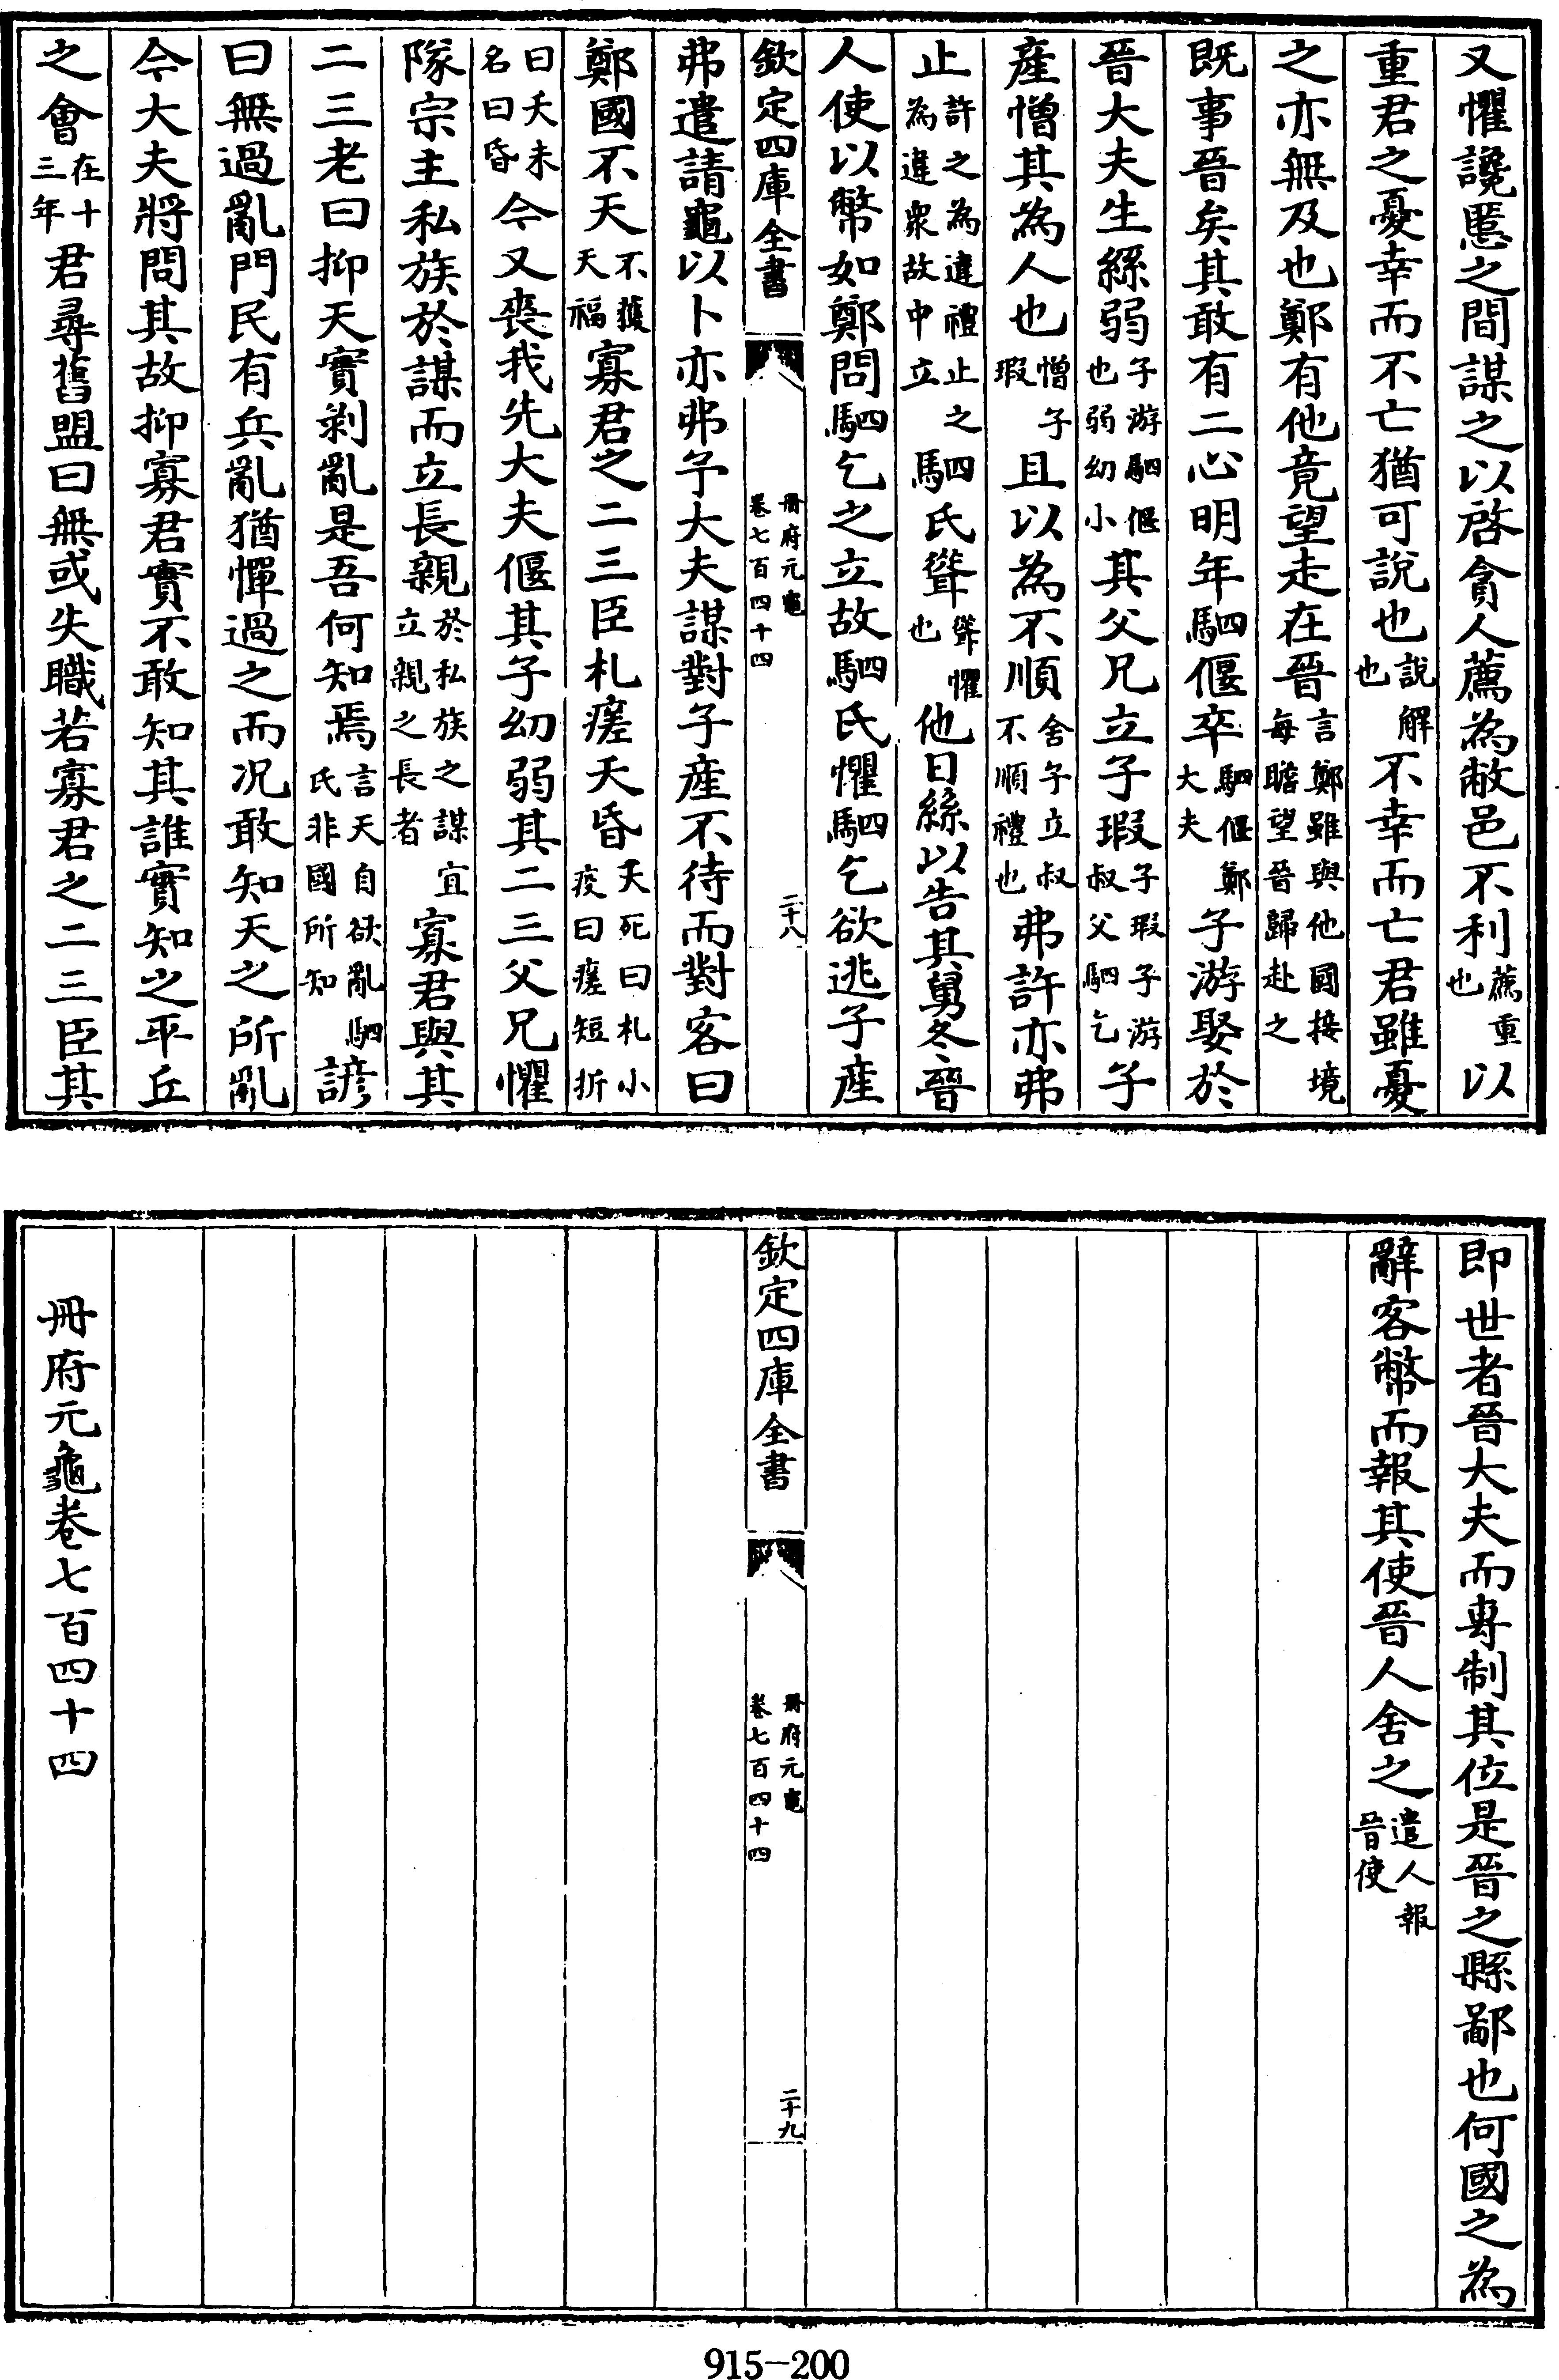 又懼讒慝之間謀之以啓貪人薦為敝邑不利薦重也以
重君之憂幸而不亡猶可說也說解也不幸而亡君雖憂
之亦無及也鄭有他竟望走在晉言鄭雖與他國接境每瞻望晉歸赴之
既事晉矣其敢有二心明年駟偃卒駟偃鄭大夫子游娶於
晉大夫生絲弱子游駟偃也弱幼小其父兄立子瑕子瑕子游叔父駟乞子
產憎其為人也憎子瑕且以為不順舍子立叔不順禮也弗許亦弗
止許之為違禮止之為違衆故中立駟氏聳聳懼也他日絲以告其舅冬晉
人使以幣如鄭問駟乞之立故駟氏懼駟乞欲逃子產
欽定四庫全書
冊府元龜
卷七百四十四
二十八
弗遣請龜以卜亦弗予大夫謀對子產不待而對客曰
鄭國不天不獲天福寡君之二三臣札瘥夭昏夭死曰札小疫曰瘥短折
曰夭未名曰昏今又喪我先大夫偃其子幼弱其二三父兄懼
隊宗主私族於謀而立長親於私族之謀宜立親之長者寡君與其
二三老曰抑天實剝亂是吾何知焉言天自欲亂駟氏非國所知諺
曰無過亂門民有兵亂猶憚過之而況敢知天之所亂
今大夫將問其故抑寡君實不敢知其誰實知之平丘
之會在十三年君尋舊盟曰無或失職若寡君之二三臣其
即世者晉大夫而專制其位是晉之縣鄙也何國之為
辭客幣而報其使晉人舍之遣人報晉使
欽定四庫全書
冊府元龜
卷七百四十四
二十九
冊府元龜卷七百四十四
915-200